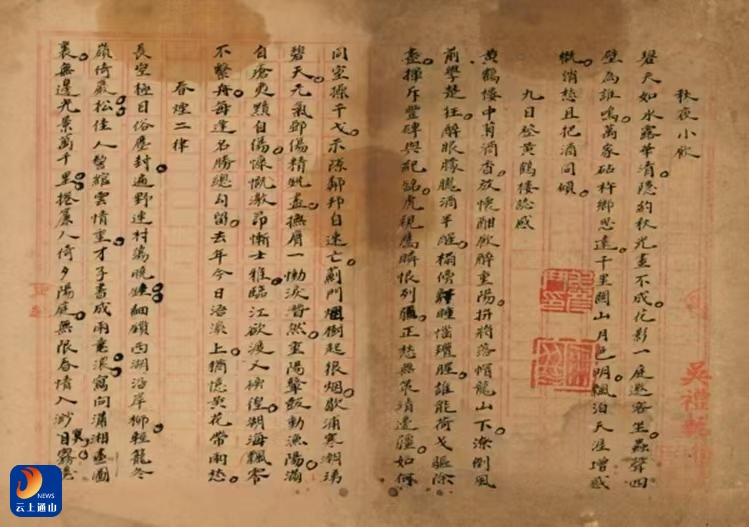 秋夜小飲
碧天如水露華清隱約秋光畫不成花影一庭邀客坐蟲聲四
壁為誰鳴萬家砧杵鄉思遠千里關山月色明飄泊天涯增感
慨消愁且把酒同傾
九日登黃鶴樓誌感
黃鶴樓中菊酒香放懷酣飲解重陽拚將落帽龍山下潦倒風
前學楚狂醉眼朦朧酒半醒榻傍鼾睡惱羶腥誰能荷戈驅除
盡揮斥豐碑與紀銘虎視鷹瞵恨列強正愁無策靖邊疆如何
同室操干戈示隙鄰邦自速亡薊門煙樹起狼烟歇浦寒潮沸
碧天元氣卻傷精銳盡撫膺一慟淚潸然重陽鼙鼓動漁陽滿
目瘡更黯自傷慷慨激昂慚士雅臨江欲渡又徬徨湖海飄零
不繫舟每逢名勝總勾留去年今日浯溪上猶憶黃花帶雨愁
春煙二律
長空極目俗塵封遍野迷村萬晚鐘細鎖西湖沿岸柳輕籠冬
嶺倚巖松佳人鬢綰雲情重才子書成雨意濃寫向瀟湘畫圖
裏無邊光景萬千里捲簾人倚夕陽庭無限春情入渺冥霧
吳禮
NEWS
云上通山